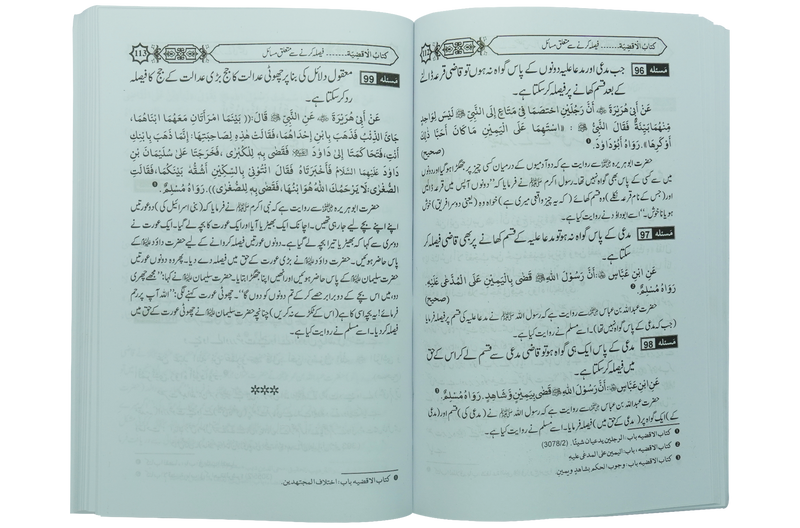 کتاب الاقضیة....... فیصلہ کرنے سے متعلق مسائل
112
مَسئلہ 96 جب مدعی اور مدعا علیہ دونوں کے پاس گواہ نہ ہوں تو قاضی قرعہ ڈالنے
کے بعد قسم کھانے پر فیصلہ کر سکتا ہے۔
عَنْ أَبِيْ هُرَيْرَةَ ﷺ أَنَّ رَجُلَيْنِ اخْتَصَمَا فِيْ مَتَاعٍ إِلَى النَّبِيِّ ﷺ لَيْسَ لِوَاحِدٍ
مِنْهُمَا بَيِّنَةٌ فَقَالَ النَّبِيُّ ﷺ : «اسْتَهِمَا عَلَى الْيَمِيْنِ مَا كَانَ أَحَبَّا ذٰلِكَ
أَوْ كَرِهَا». رَوَاهُ أَبُوْدَاوُدَ. ❶ (صحیح)
حضرت ابو ہریرہ سے روایت ہے کہ دو آدمیوں کے درمیان کسی چیز پر جھگڑا ہو گیا اور دونوں
میں سے کسی کے پاس بھی گواہ نہیں تھا۔ رسول اکرم ﷺ نے فرمایا کہ "دونوں آپس میں قرعہ ڈالیں
اور (جس کے نام قرعہ نکلے) وہ قسم کھائے (کہ یہ چیز واقعی میری ہے) خواہ وہ (یعنی دوسرا فریق) خوش
ہو یا ناخوش۔" اسے ابوداؤد نے روایت کیا ہے۔
مَسئلہ 97 مدعی کے پاس گواہ نہ ہو تو مدعا علیہ کے قسم کھانے پر بھی قاضی فیصلہ کر
سکتا ہے۔
عَنِ ابْنِ عَبَّاسٍ ﷺ : أَنَّ رَسُوْلَ اللهِ ﷺ قَضٰى بِالْيَمِيْنِ عَلَى الْمُدَّعٰى عَلَيْهِ
رَوَاهُ مُسْلِمٌ. ❷ (صحیح)
حضرت عبداللہ بن عباس سے روایت ہے کہ رسول اللہ ﷺ نے مدعا علیہ کی قسم پر فیصلہ فرمایا
(جب کہ مدعی کے پاس گواہ نہیں تھا)۔ اسے مسلم نے روایت کیا ہے۔
مَسئلہ 98 مدعی کے پاس ایک ہی گواہ ہو تو قاضی مدعی سے قسم لے کر اس کے حق
میں فیصلہ کر سکتا ہے۔
عَنِ ابْنِ عَبَّاسٍ ﷺ : أَنَّ رَسُوْلَ اللهِ ﷺ قَضٰى بِيَمِيْنٍ وَشَاهِدٍ. رَوَاهُ مُسْلِمٌ. ❸
حضرت عبداللہ بن عباس سے روایت ہے کہ رسول اللہ ﷺ نے (مدعی کی) قسم اور (مدعی
کے) ایک گواہ پر (مدعی کے حق میں) فیصلہ فرمایا۔ اسے مسلم نے روایت کیا ہے۔
❶ کتاب الاقضیہ باب: الرجلین یدعیان شیئًا. (3078/2)
❷ کتاب الاقضیہ، باب: الیمین علی المدعی علیه
❸ کتاب الاقضیہ باب: وجوب الحکم بشاهد ویمین
کتاب الاقضیة....... فیصلہ کرنے سے متعلق مسائل
113
مَسئلہ 99 معقول دلائل کی بنا پر چھوٹی عدالت کا جج بڑی عدالت کے جج کا فیصلہ
رد کر سکتا ہے۔
عَنْ أَبِيْ هُرَيْرَةَ ﷺ عَنِ النَّبِيِّ ﷺ قَالَ : ((بَيْنَمَا امْرَأَتَانِ مَعَهُمَا ابْنَاهُمَا،
جَاءَ الذِّئْبُ فَذَهَبَ بِابْنِ إِحْدَاهُمَا، فَقَالَتْ هٰذِهِ لِصَاحِبَتِهَا: إِنَّمَا ذَهَبَ بِابْنِكِ
أَنْتِ، فَتَحَاكَمَتَا إِلٰى دَاوُدَ ﷺ فَقَضٰى بِهِ لِلْكُبْرٰى ، فَخَرَجَتَا عَلٰى سُلَيْمَانَ بْنِ
دَاوُدَ عَلَيْهِمَا السَّلَامُ فَأَخْبَرَتَاهُ فَقَالَ ائْتُوْنِيْ بِالسِّكِّيْنِ أَشُقُّهُ بَيْنَكُمَا، فَقَالَتِ
الصُّغْرٰى، لَا يَرْحَمُكَ اللهُ هُوَ ابْنُهَا، فَقَضٰى بِهِ لِلصُّغْرٰى)). رَوَاهُ مُسْلِمٌ. ❶
حضرت ابو ہریرہ سے روایت ہے کہ نبی اکرم ﷺ نے فرمایا کہ (بنی اسرائیل کی) دو عورتیں
اپنے اپنے بچے لیے جا رہی تھیں۔ اچانک ایک بھیڑیا آیا اور ایک عورت کا بچہ لے گیا۔ ایک عورت نے
دوسری سے کہا کہ بھیڑیا تیرا بچہ لے گیا ہے۔ دونوں عورتیں فیصلہ کروانے کے لیے حضرت داؤد کے
پاس حاضر ہوئیں۔ حضرت داؤد نے بڑی عورت کے حق میں فیصلہ دے دیا۔ پھر وہ دونوں عورتیں
حضرت سلیمان کے پاس حاضر ہوئیں اور انہیں اپنا جھگڑا بتایا۔ حضرت سلیمان نے کہا: "مجھے چھری
دو، میں اس بچے کے دو برابر حصے کر کے تم دونوں کو دوں گا"۔ چھوٹی عورت کہنے لگی: "اللہ آپ پر رحم
فرمائے! یہ بچہ اسی کا ہے (اس کے ٹکڑے نہ کریں) چنانچہ حضرت سلیمان نے چھوٹی عورت کے حق میں
فیصلہ کر دیا۔ اسے مسلم نے روایت کیا ہے۔
✲✲✲
❶ کتاب الاقضیہ باب: اختلاف المجتهدین.